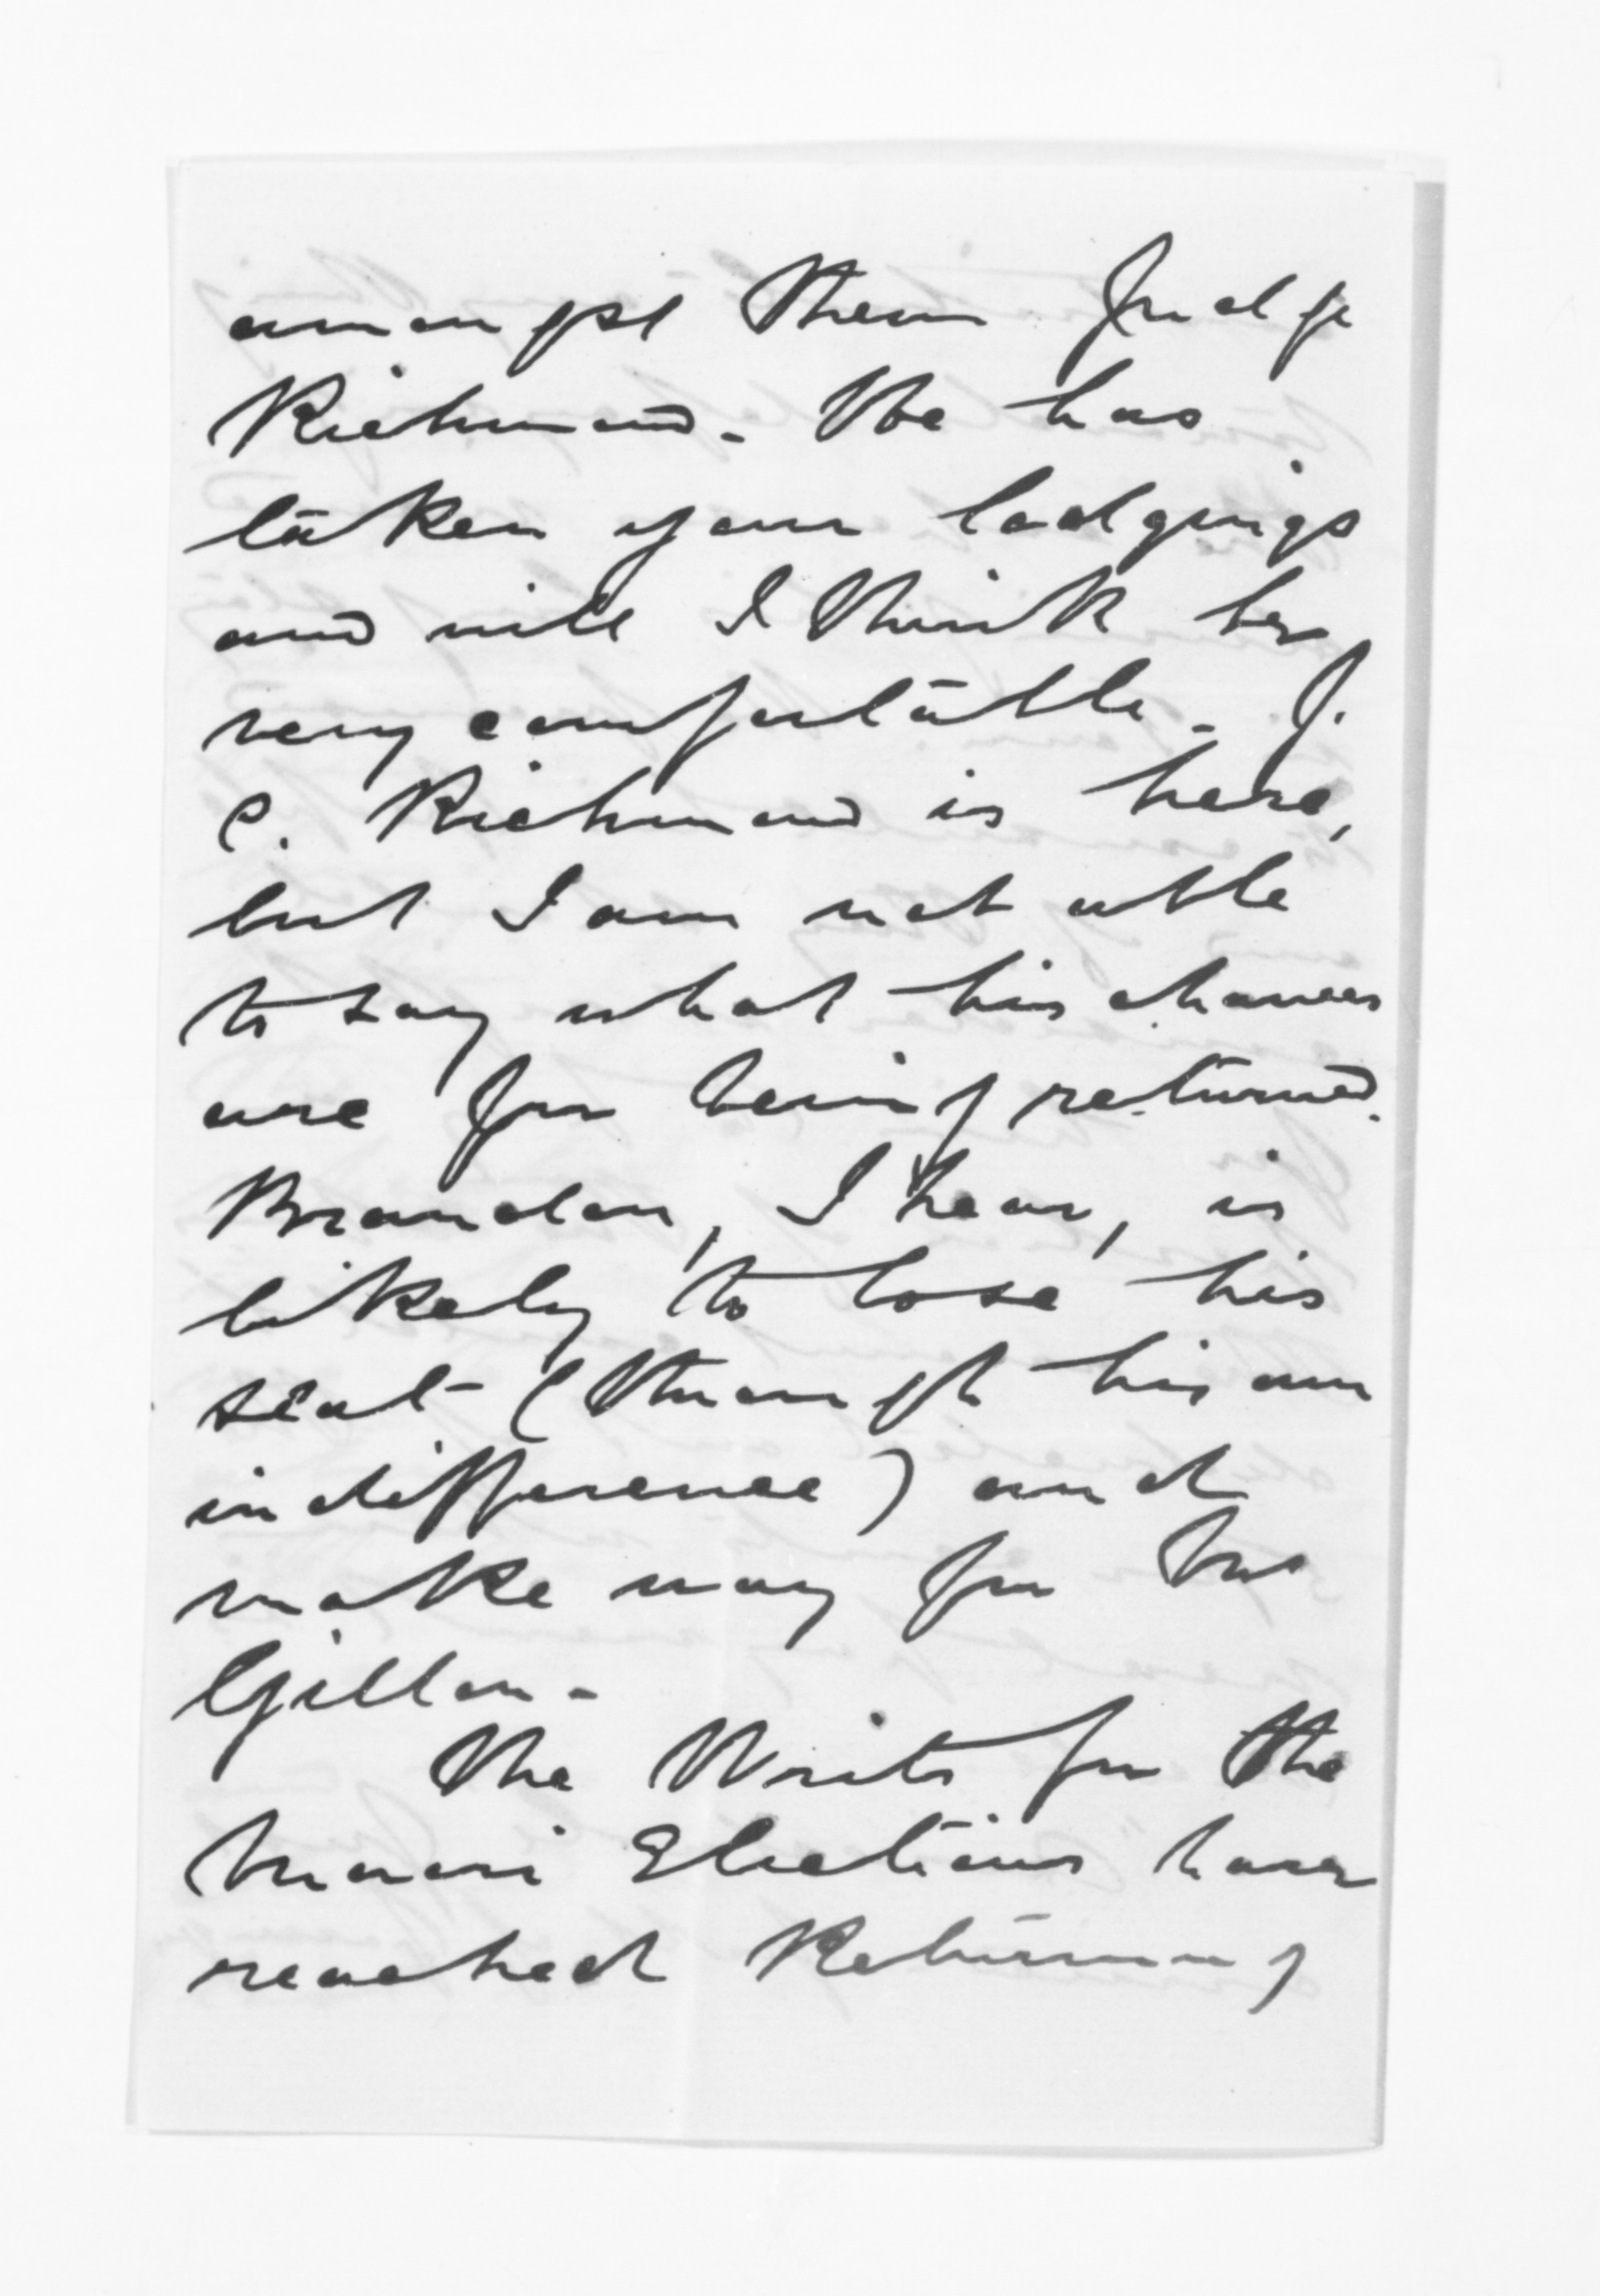 amongst them Judge
Richmond. He has
taken your lodgings
and will I think be
very comfortable. J.
C. Richmond is here,
but I am not able
to say what his chances
are for being returned.
Brandon, I hear, is
likely to lose his
seat (through his own
indifference) and
make way for Mr
Gillon.
The Writs for the
Maori Elections have
reached Returning